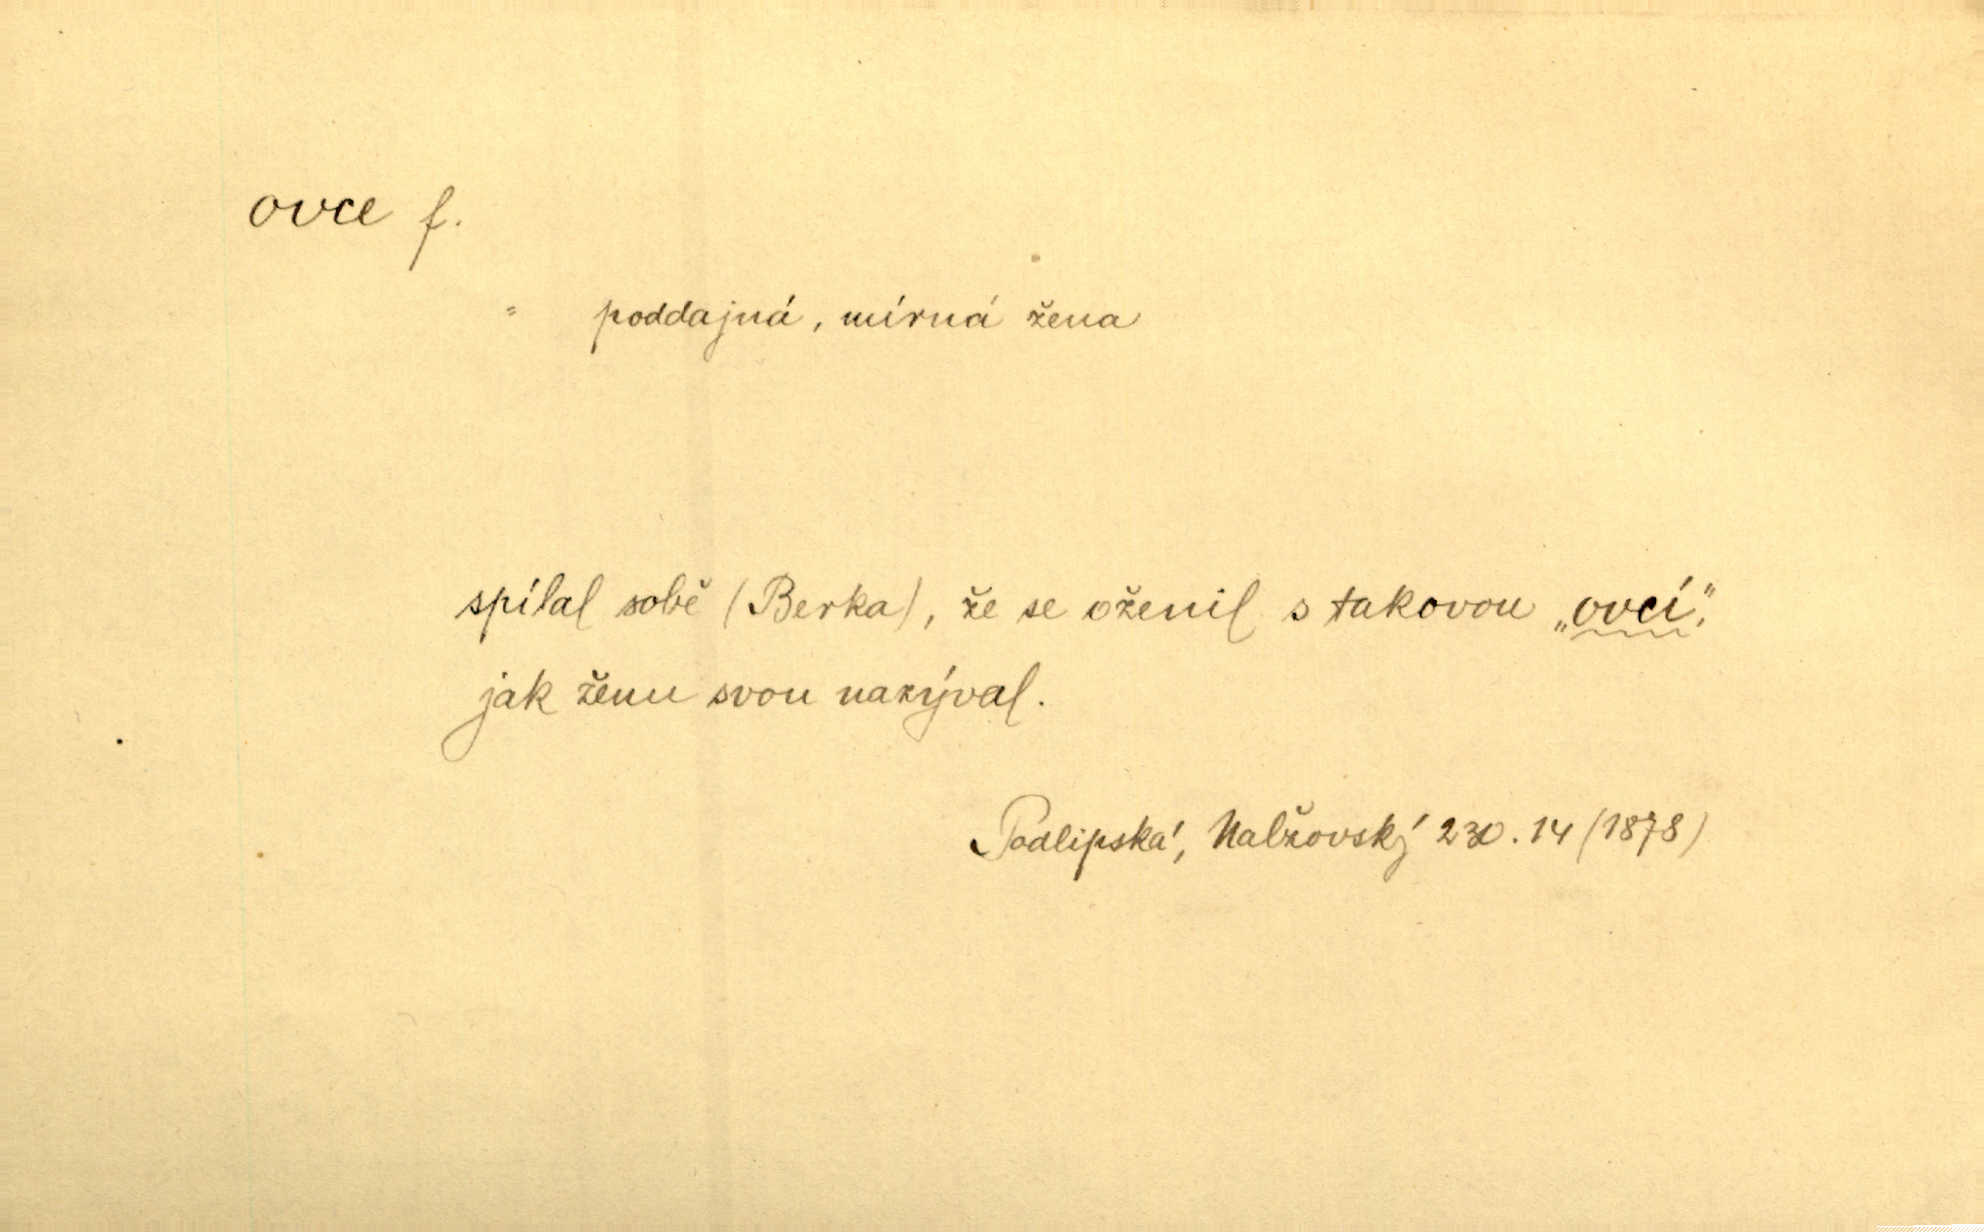 ovce f.
= poddajná, mírná žena
spílal sobě (Berka), že se oženil s takovou „ovcí“,
jak ženu svou nazýval.
Podlipská, Nalžovský 230.14 (1878)